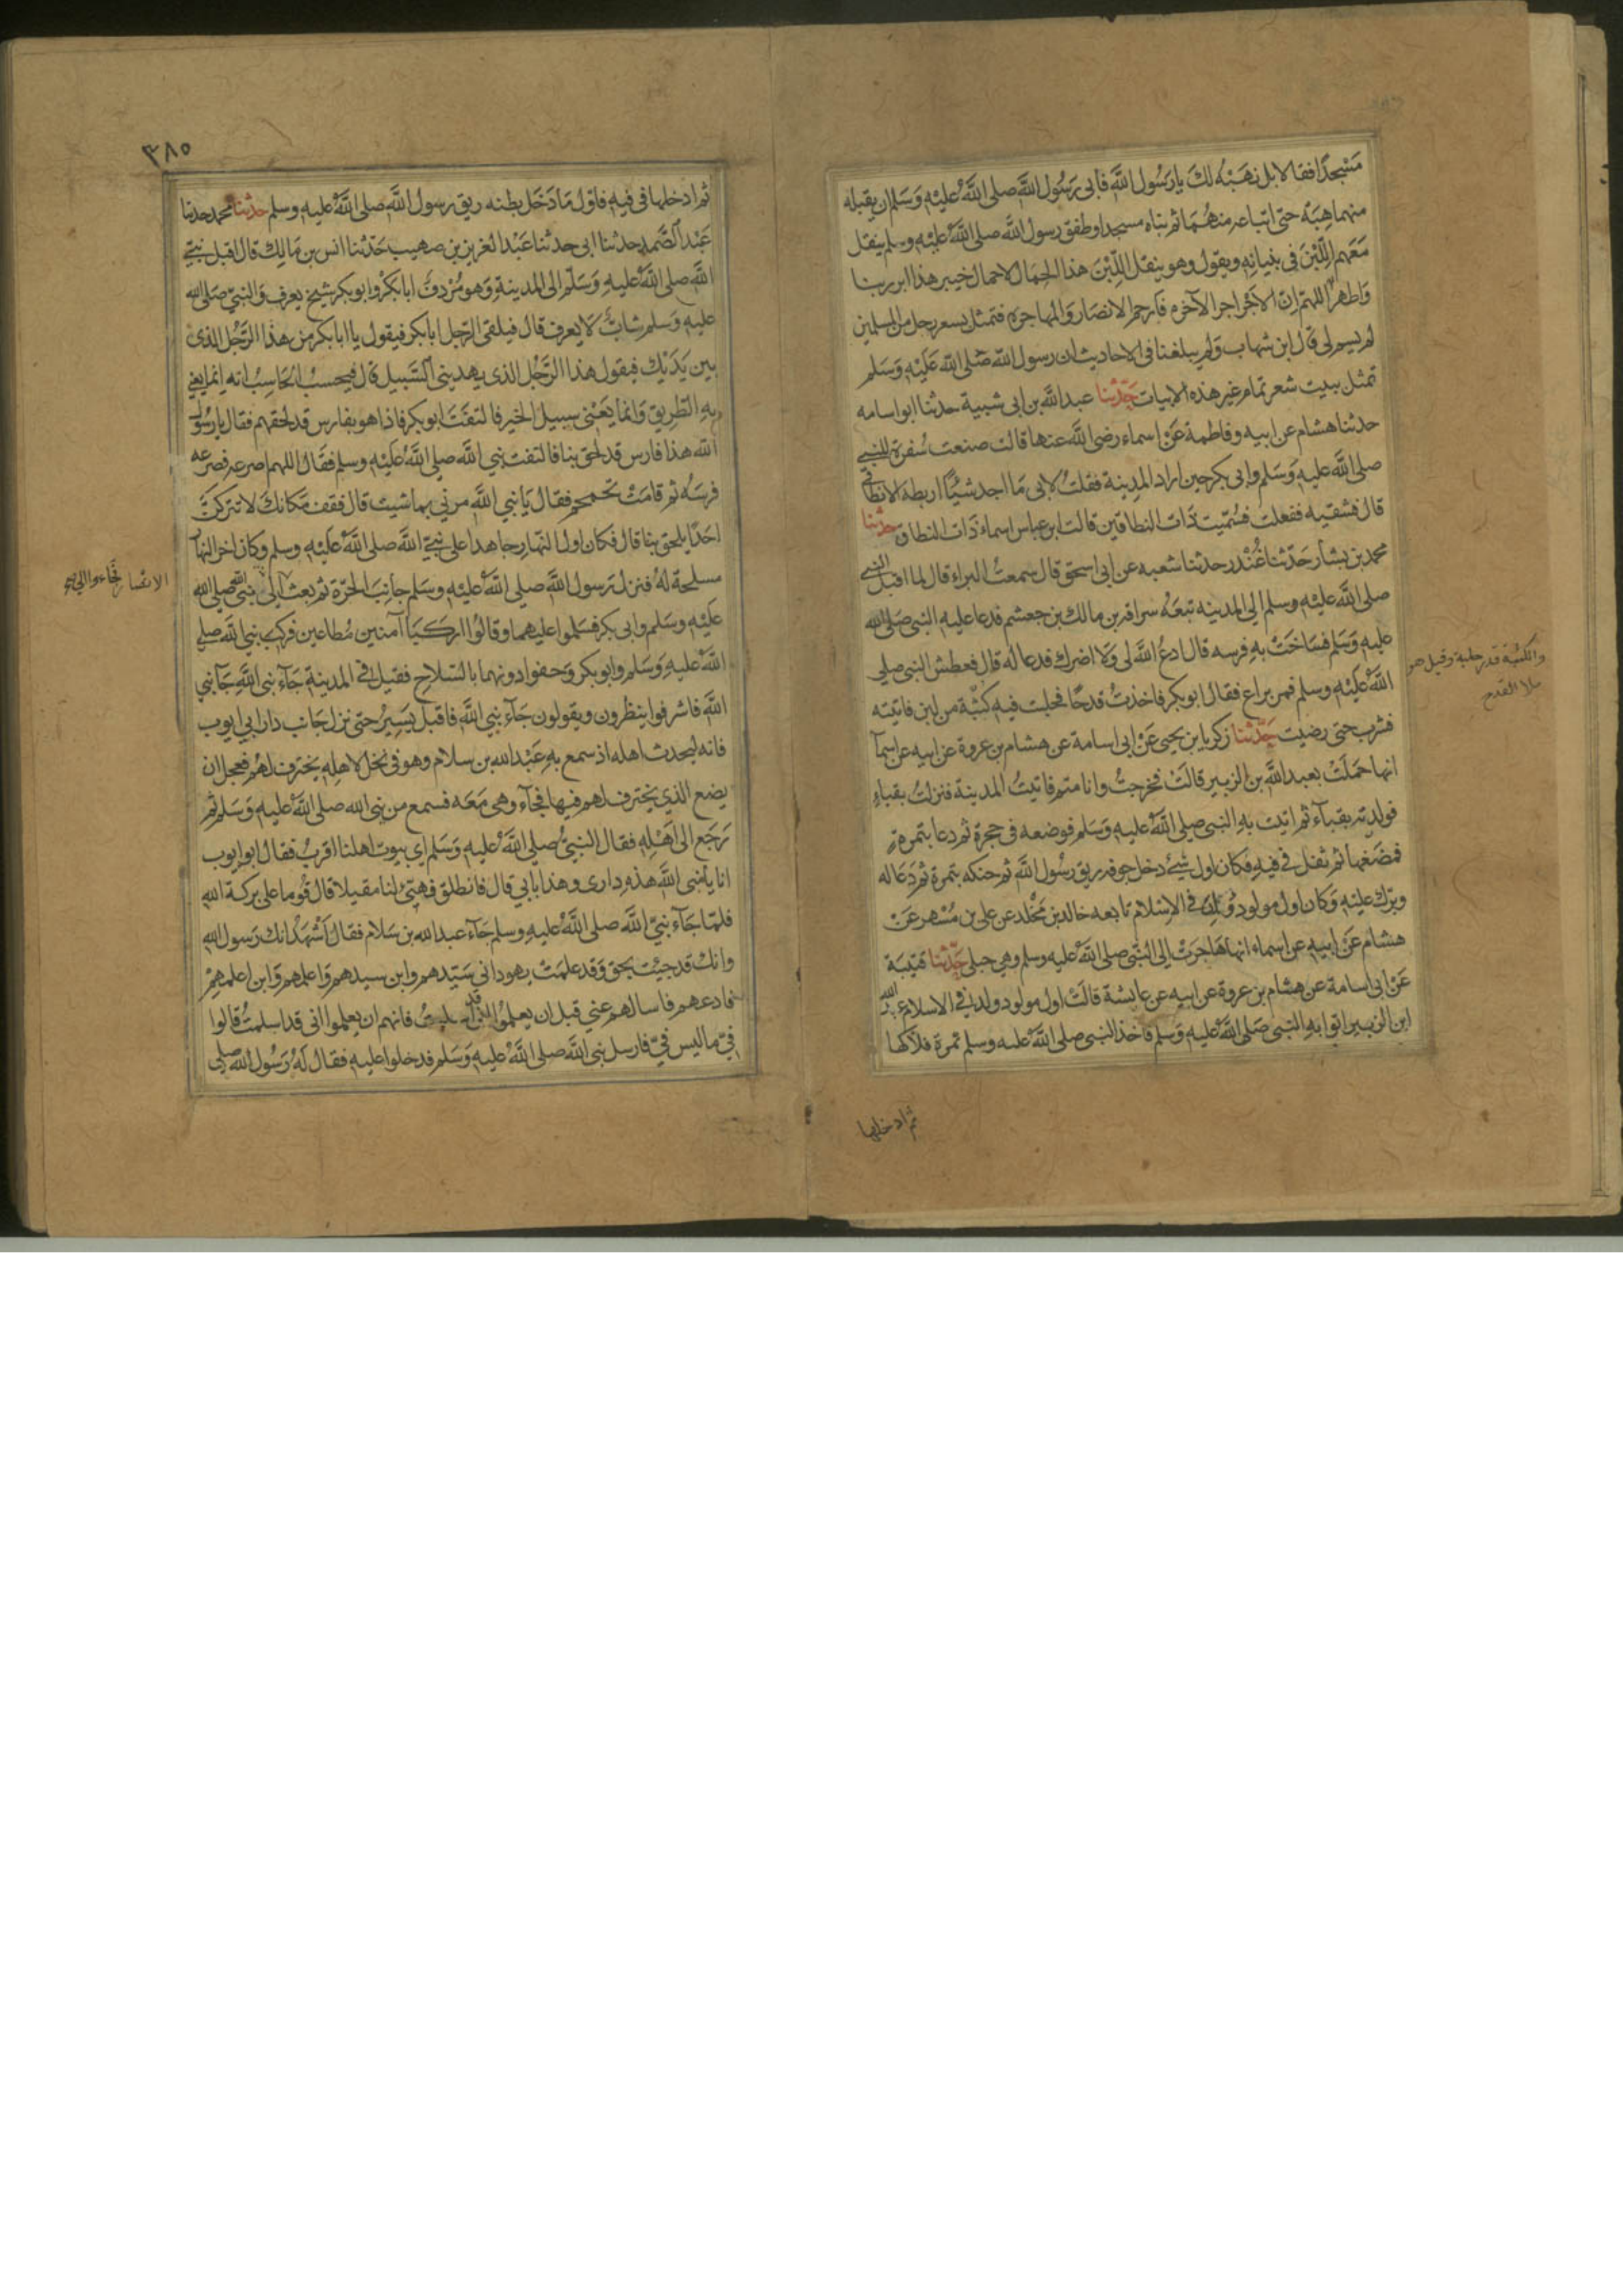 مَسْجِدًا فقالا بل نهَبُه لكَ يا رَسُول اللَّه فابى رَسُول اللَّه صلى اللَّه عليْهِ وَسَلم ان يقبله
منهما هِبَةً حتى ابتاعه منهُمَا ثم بناه مسجدا وطفق رسول اللَّه صلى اللَّه عليْهِ وسلم ينقل
مَعَهم اللَّبِنَ فى بنيانِهِ ويقول وهو ينقل اللَّبِنَ هذا الحِمَال لا حمال خيبر هذا ابر ربنا
وَاطهر اللهمّ اِنّ الاَجْر اجر الآخره فارحم الانصَار وَالمهاجره فتمثل بشعر رجل من المسلمين
لم يسم لى قال ابن شهاب وَلم يبلغنا فى الاحاديث ان رسول اللّه صَلى اللّه عَليْهِ وَسَلم
تمثل ببيت شعر تمام غير هذه الابيات حَدّثنا عبد اللَّه بن ابى شيبة حدثنا ابو اسامه
حدثنا هشام عن ابيه وفاطمة عَنْ اسماء رضى اللَّه عنها قالت صنعت سُفرة للنبى
صلى اللَّه عليهِ وَسَلم وابى بكر حين اراد المدِينة فقلتُ لابى مَا اجد شيْئًا اربطه الا نطاقى
قال فشقيه ففعلت فسُمّيت ذَات النطاقين قالت ابن عباس اسماء ذَات النطاق حدثنا
محمد بن بشار حَدّثنا غُنْدر حدثنا شعبه عن ابى اسحق قال سمعتُ البراء قال لما اقبل النبى
صلى اللَّه عليْهِ وسلم الى المدينه تبعَهُ سراقه بن مالك بن جعشم فدعا عليهِ النبى صَلى الله
عليهِ وَسَلم فسَاخَتْ بهِ فرسه قال ادعُ اللَّه لى وَلا اضرك فدعا لهُ قال فعطش النبى صلى
اللَّه عَليْهِ وسلم فمر براع فقال ابو بكر فاخذتُ قدحًا فحلبت فيه كثبَّة من لبن فاتيته
فشرب حتى رضيت حَدّثنا زكريا بن يحيى عَنْ ابى اسامة عن هشام بن عروة عن ابيه عن اسمآ
انها حمَلَتْ بعبد اللَّه بن الزبير قالَتْ فخرجتُ وانا متم فاتيتُ المدينة فنزلتُ بقباءٍ
فولدته بقبآء ثم اتيت بهِ النبى صلى اللَّه عليهِ وَسَلم فوضعه فى حجرهِ ثم دعا بتمرةٍ
فمضَغها ثم تفل فى فيهِ فكان اول شئ دخل جوفه ريق رسُول اللَّه ثم حنكه بتمرة ثم دَعَا له
وبرّك عليْهِ وَكان اول مولود وُلد فى الاِسْلام تابعه خالد بن مَخْلد عن على بن مُسْهر عَنْ
هشام عَنْ ابيهِ عن اسماء انها هَاجرَتْ الى النّبى صلى اللَّه عليه وسلم وهى حبلى حَدّثنا قتيبَة
عَنْ ابى اسامة عن هشام بن عروة عن ابيه عن عائشة قالَتْ اول مولود ولد فى الاسلام عبد الله
ابن الزبير اتوا بهِ النبى صَلى اللَّه عليهِ وَسلم فاخذ النبى صلى اللَّه عليه وسلم تمرة فلاكها
ثم ادخلها
والكثبة قدر حلبة وقيل هو
ملا القدح
٣٨٥
ثم ادخلها فى فيهِ فاوّل مَا دَخَل بطنه ريق رسول اللَّه صلى اللَّه عليهِ وسلم حدثنا محمد حدثنا
عَبْد الصَّمد حدثنا ابى حدثنا عَبْد العزيز بن صهيب حَدّثنا انس بن مَالِك قال اقبل نبىّ
اللَّه صلى اللَّه عليْهِ وَسَلّم الى المدينةِ وَهو مُرْدفٌ ابا بكرٍ وابو بكر شيخ يعرف وَالنبىّ صَلى الله
عليهِ وَسلم شابٌّ لا يعرف قال فيلقى الرّجل ابا بكر فيقول يا ابا بكر من هٰذا الرَّجُل الذى
بين يَدَيْك فيقول هذا الرّجُل الذى يهدينى السَّبيل قال فيحسبُ الحَاسِبُ انه انما يعنى
بهِ الطّرِيق وَانما يَعْنى سبيل الخير فالتفَتَ ابو بكر فاذا هو بفارس قد لحقهم فقال يا رسُول
اللَّه هذا فارس قد لحق بنا فالتفت نبى اللَّه صلى اللَّه عَليْهِ وسلم فقال اللهم اصرعه فصرعه
فرسُه ثم قامَتْ تحمحم فقال يَا نبى اللَّه مرنى بما شيت قال فقف مَكانكَ لا تتركنّ
احَدًا يلحق بنا قال فكان اول النّهَار جاهدا على نبىّ اللَّه صلى اللَّه عَليْهِ وسلم وكان اخر النهآر
مسلحة لهُ فنزل رسول اللَّه صلى اللَّه عليْهِ وسَلم جانِبَ الحَرّة ثم بعث الى نبى اللَّه صلى الله
الانصار فجاءوا الى نبى
عَليْهِ وسَلم وابى بكر فسَلموا عليهما وقالُوا اركبَا آمنين مُطاعين فركب نبى اللَّه صلى
اللَّه عليهِ وَسَلم وابو بكر وَحفوا دونهما بالسّلاحِ فقيل فى المدينةِ جَآء نبى اللَّهِ جَآ نبى
اللَّه فاشرفوا ينظرون ويقولون جَآء نبى اللَّه فاقبل يَسِيرُ حتى نزل جَانب دار ابى ايوب
فانه ليحدث اهله اذ سمع بهِ عَبْد الله بن سلام وهو فى نخل لاهلِهِ يخترف لهُم فعجل ان
يضع الذى يخترف لهم فيها فجآء وهى مَعَه فسمع من نبى الله صلى اللَّه عليهِ وَسَلم ثم
رَجَع الى اَهْلِهِ فقال النبىُّ صلى اللَّه عليهِ وَسَلم اى بيوت اهلنا اقربُ فقال ابو ايوب
انا يا نبى اللَّه هذهِ دارى وهذا بابى قال فانطلق فهيّئ لنا مقيلا قال قُوما على بركة الله
فلمّا جَآء نبىّ اللَّه صلى اللَّه عليهِ وسلم جَآء عبد الله بن سَلام فقال اَشْهَدُ انك رَسول الله
وانك قد جئت بحق وَقد علمَتْ يهود انى سَيّدهم وابن سيدهم وَاعلمهم وَابن اعلمهِمْ
فادعهم فاسالهم عنى قبل ان يعلمُوا انى قد اسلمتُ فانهم ان يعلموا انى قد اسلمتُ قالوا
فىّ ما ليس فىّ فارسل نبى اللَّه صلى اللَّه عليهِ وَسَلم فدخلوا عليهِ فقال لَهُ رَسُول اللَّه صلى